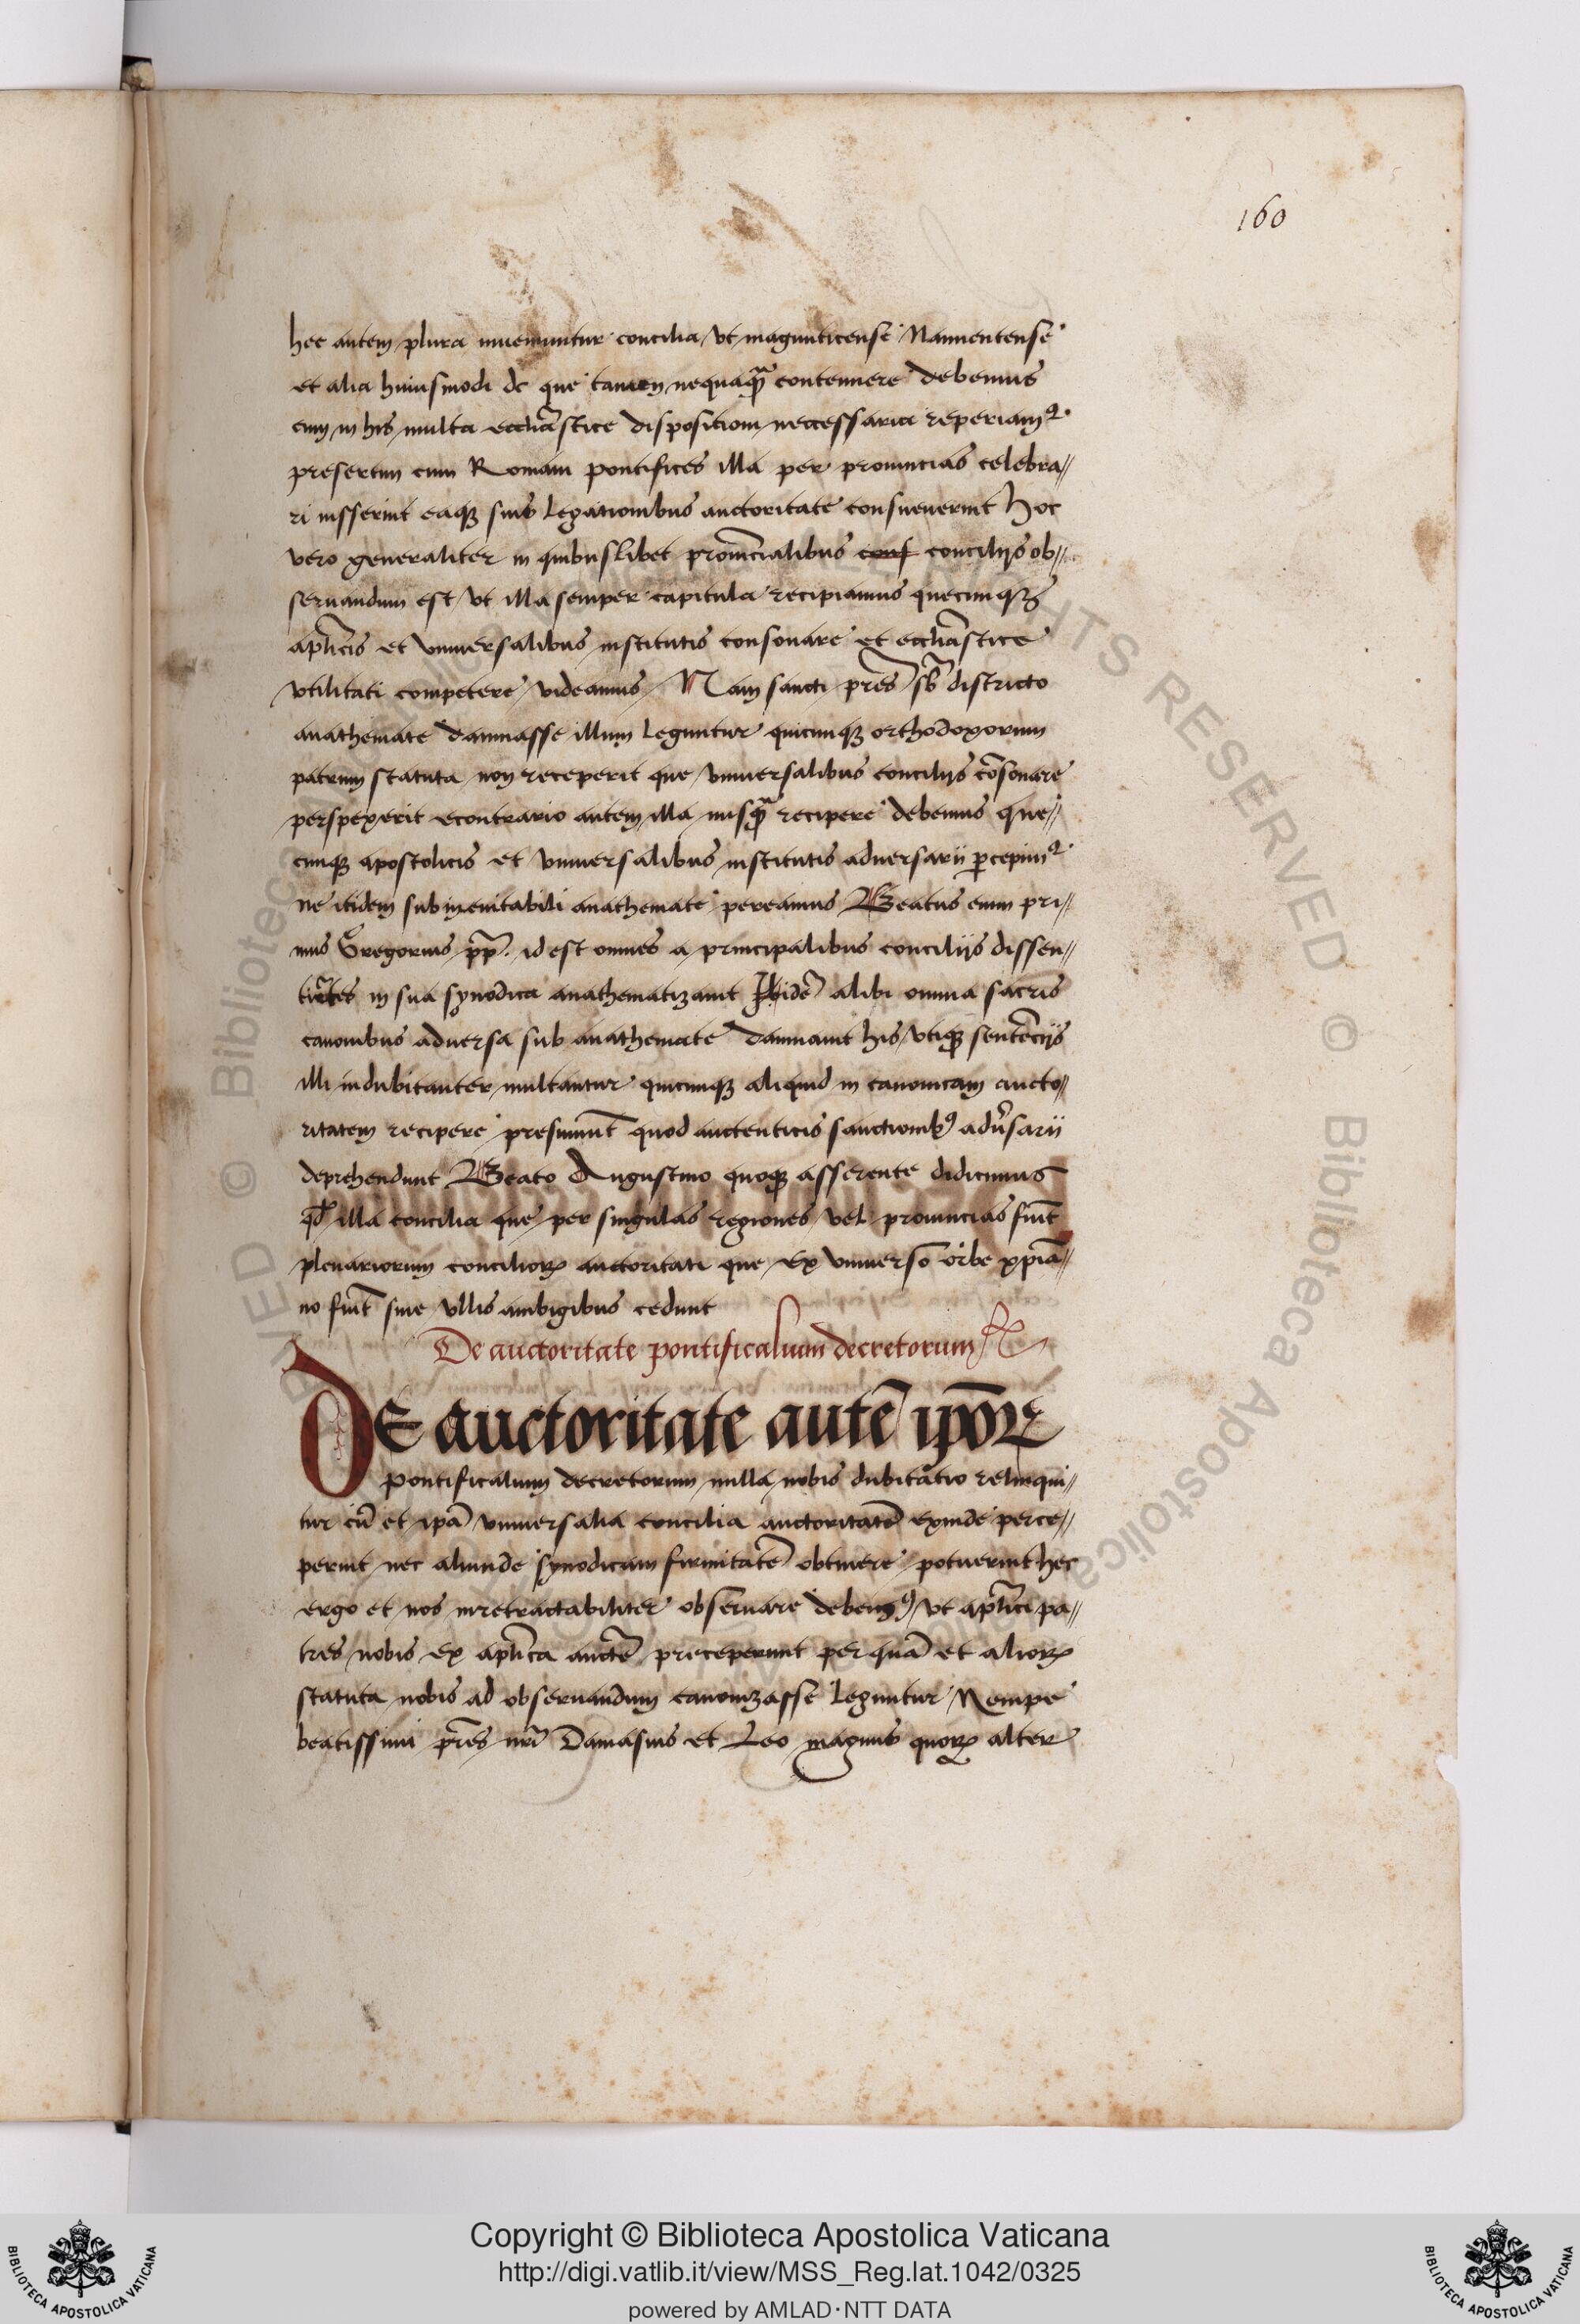 160
hec autem plura inueniuntur concilia vt magunticense Nannentense
et alia huiusmodi de que tamen nequaq̃ contennere debemus
cum in his multa eccliãstice dispositioni neccessaria reperiam9
presertim cum Romani pontifices illa per prouincias celebra//
ri iusserint eaqꝫ suis legationibus auctoritate consueuerint Hoc
vero generaliter in quibuslibet prouincialibus conf concilijs ob//
seruandum est vt illa semper capitula recipiamus quecunqꝫ
apl̃icis et vniuersalibus institutis consonare et eccliãstice
vtilitati competere videamus Nam sancti pr̃es sb̃ districto
anathemate damnasse illum leguntur quicunqꝫ orthodoxorum
patrum statuta non receperit que vniuersalibus concilijs cõsonare
perspexerit econtrario autem illa nusq̃ recipere debemus que//
cunqꝫ apostolicis et vniuersalibus institutis aduersarij ꝑcepim9
ne itidem sub ineuitabili anathemate pereamus Beatus enim pri//
mus Gregorius pp̃. id est omnes a principalibus concilijs dissen//
in sua synodica anathematizauit alibi omnia sacris
canonibus aduersa sub anathemate damnauit his vtiqꝫ sentẽcijs
illi indubitanter multantur quicunqꝫ aliquid in canonicam aucto//
ritatem recipere presumũt quod auctenticis sanctionib9 adũsarij
deprehendunt Beato Augustino quoqꝫ asserente didicimus
qd̃ illa concilia que per singulas regiones vel prouincias fiũt
plenariorum conciliorꝝ auctoritati que ex vniuerso orbe xpiã//
no fiũt sine vllis ambigibus cedunt
De auctoritate pontificalium decretorum Rᵃ
DE auctoritate autẽ ip̃orꝝ
pontificalium decretorum nulla nobis dubitatio relinqui//
tur cũ et ip̃a vniuersalia concilia auctoritatẽ exinde perce//
perint nec aliunde synodicam firmitatẽ obtinere potuerint hec
ergo et nos irretractabiliter obseruare debem9 vt apl̃ici pa//
tres nobis ex apl̃ica aucte᷃ preceperunt per quã et aliorꝝ
statuta nobis ad obseruandum canonizasse leguntur Nempe
beatissimi pr̃es nr̃i Damasus et Leo magnus quorꝝ alter
Copyright © Biblioteca Apostolica Vaticana
http://digi.vatlib.it/view/MSS_Reg.lat.1042/0325
powered by AMLAD·NTT DATA